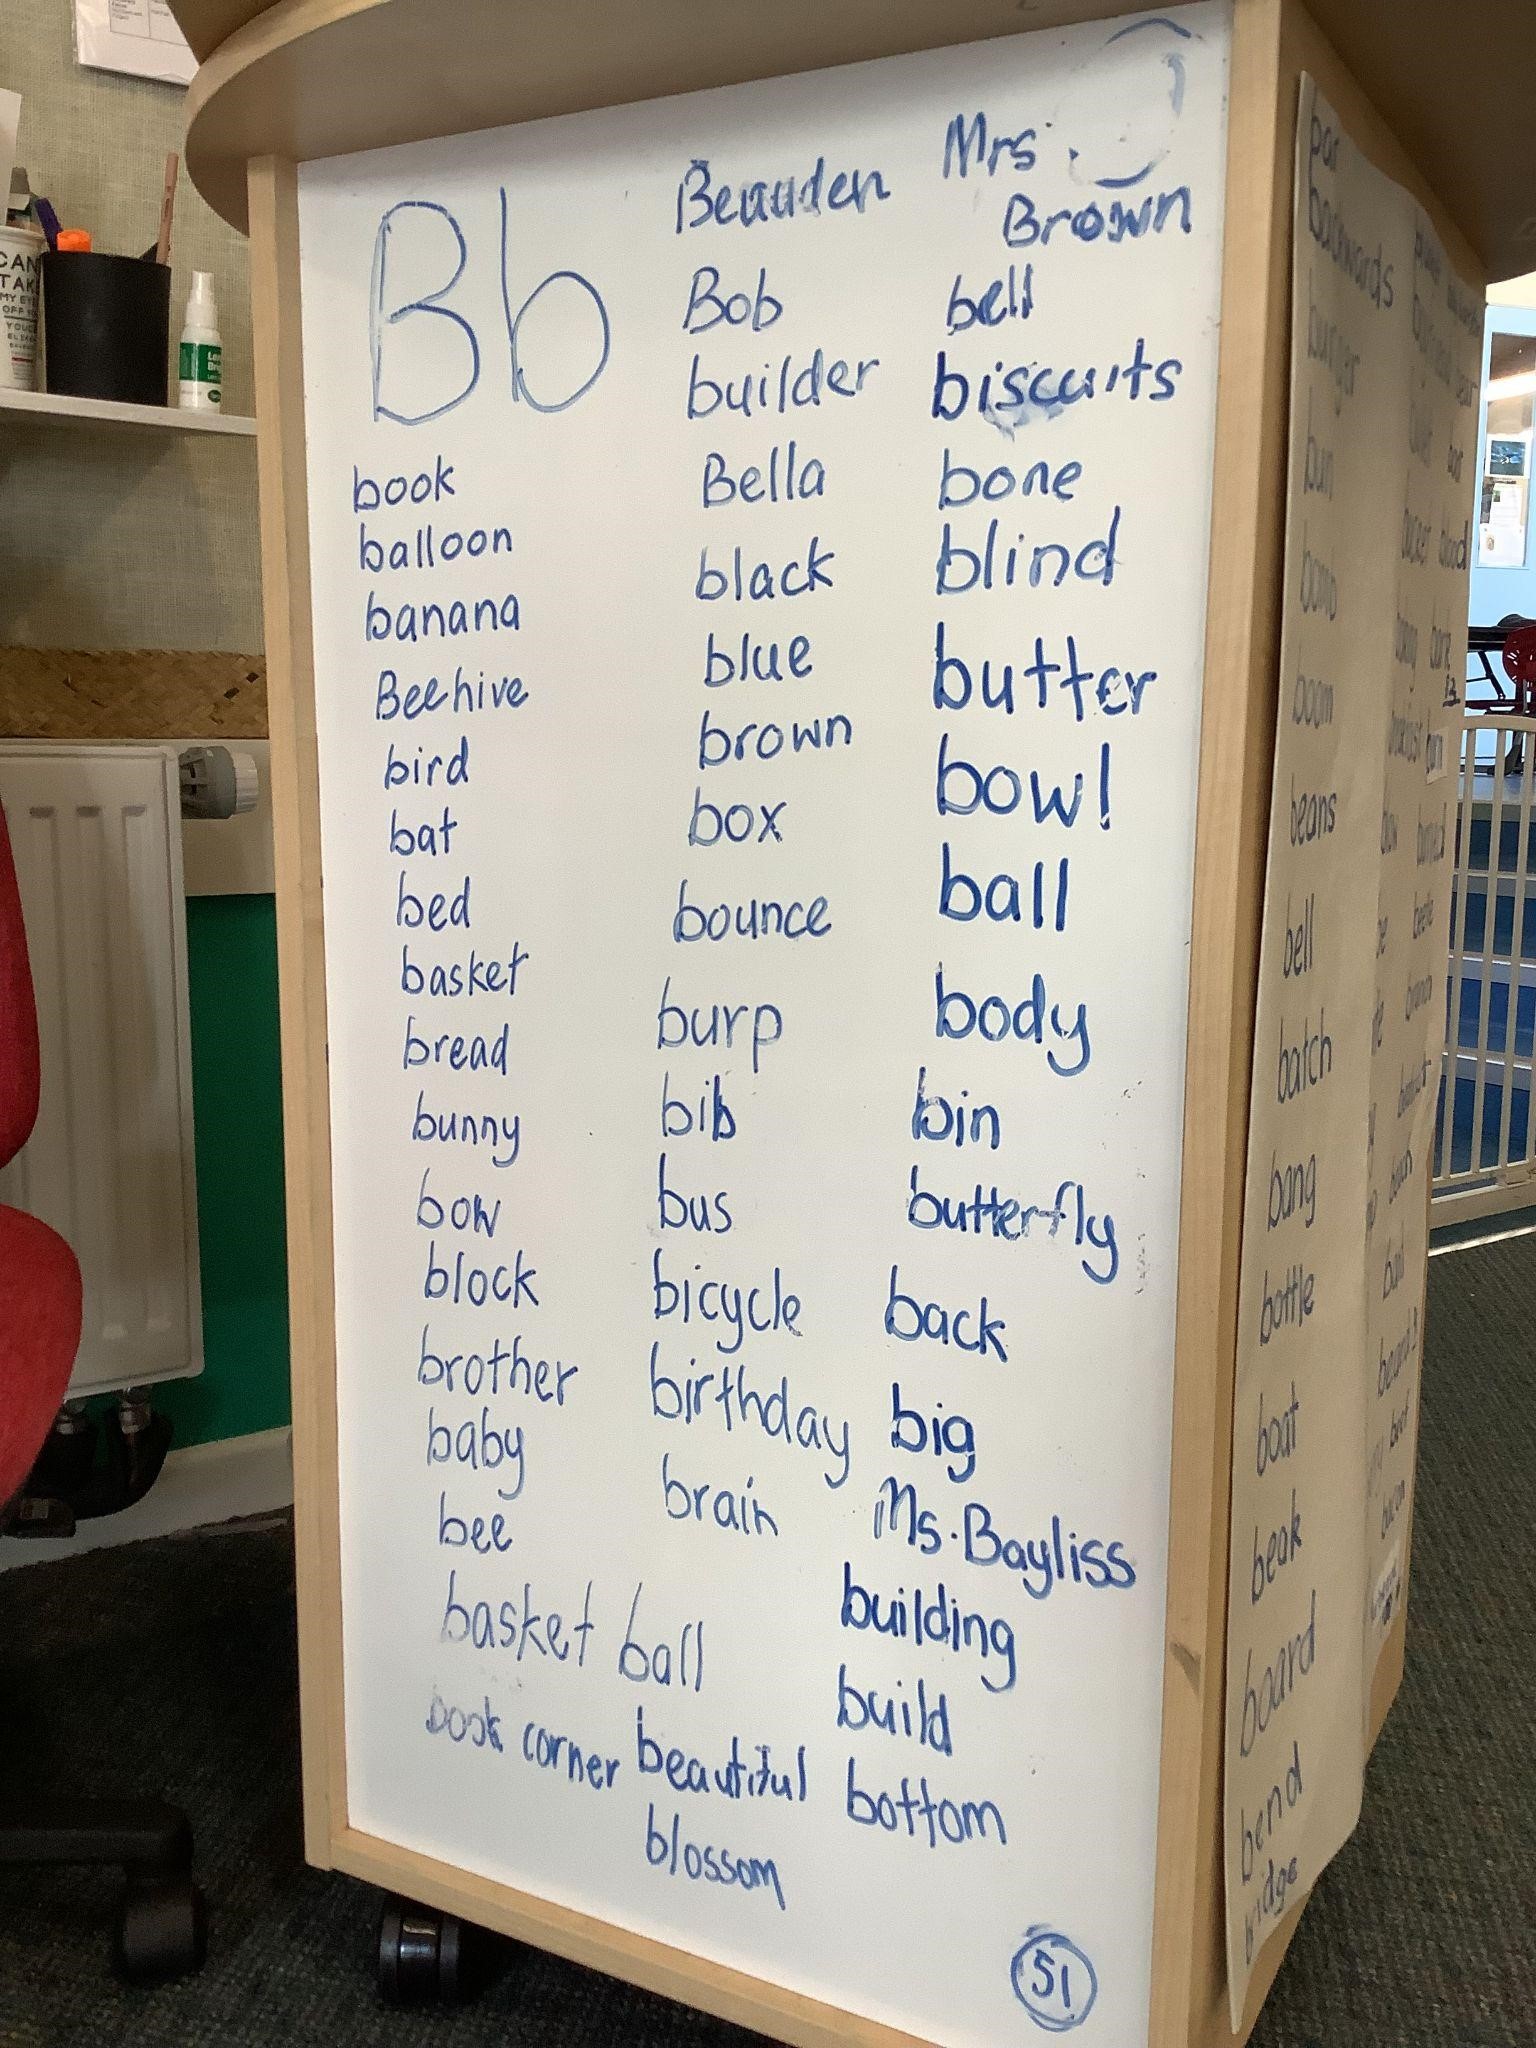 Bb
book
balloon
banana
Beehive
bird
bat
bed
basket
bread
bunny
bow
block
brother
baby
bee
basket ball
book corner
Beauden
Bob
builder
Bella
black
blue
brown
box
bounce
burp
bib
bus
bicycle
birthday
brain
beautiful
blossom
Mrs.
Brown
bell
biscuits
bone
blind
butter
bowl
ball
body
bin
butterfly
back
big
Ms. Bayliss
building
build
bottom
51
backwards
burger
bun
bomb
boom
beans
bell
batch
bang
bottle
boat
beak
board
bend
CAN
TAKE
MY EYE
OFF